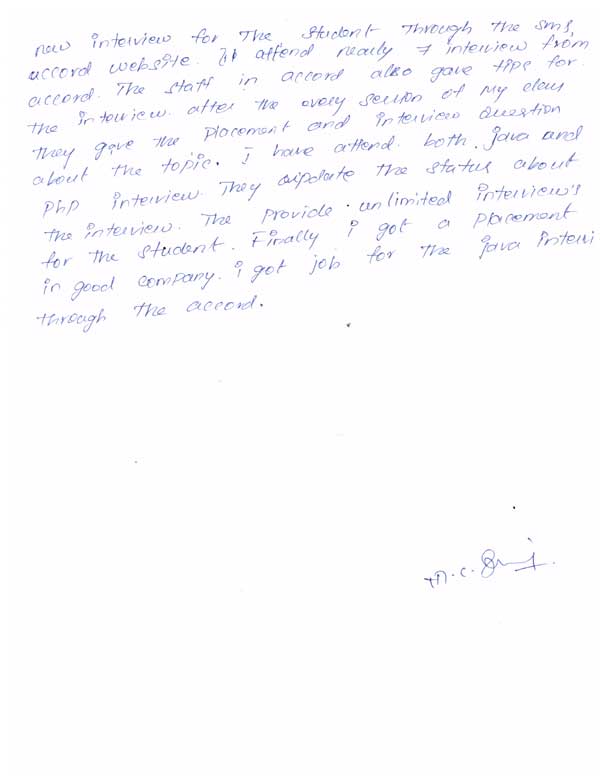 new interview for The student Through the sms,
accord website. I attend nearly 7 interview from
accord. The staff in accord also gave tips for
the interview. after the every session of my class
they give the placement and interview question
about the topic. I have attend both java and
php interview. They updates the status about
the interview. The provide unlimited interview's
for the student. Finally i got a placement
in good company. i got job for the java intervi
through the accord.
M.C.